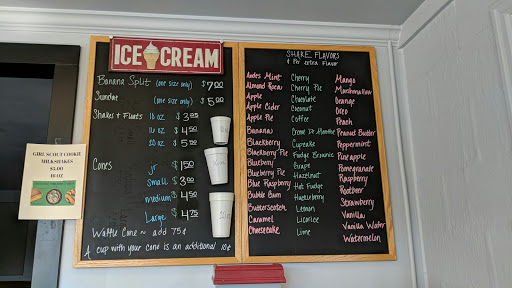 ICE CREAM
Banana Split (one size only) $7.00
Sundae (one size only) $5.00
Shakes & Floats 16 oz $3.95
16 oz $4.50
20 oz $5.00
Cones jr $1.50
Small $3.00
medium $4.50
Large $4.75
Waffle Cone ~ add 75¢
A cup with your cone is an additional 10¢
GIRL SCOUT COOKIE
MILKSHAKES
16 OZ
SHAKE FLAVORS
Andes Mint
Almond Rocas
Apple
Apple Cider
Apple Pie
Banana
Blackberry
Blackberry Pie
Blueberry
Blueberry Pie
Blue Raspberry
Bubble Gum
Butterscotch
Caramel
Cheesecake
Cherry
Cherry Pie
Chocolate
Coconut
Coffee
Creme De Menthe
Cupcake
Fudge Brownie
Grape
Hazelnut
Hot Fudge
Huckleberry
Lemon
Licorice
Lime
Mango
Marshmallow
Orange
Oreo
Peach
Peanut Butter
Peppermint
Pineapple
Pomegranate
Raspberry
Rootbeer
Strawberry
Vanilla
Vanilla Wafer
Watermelon